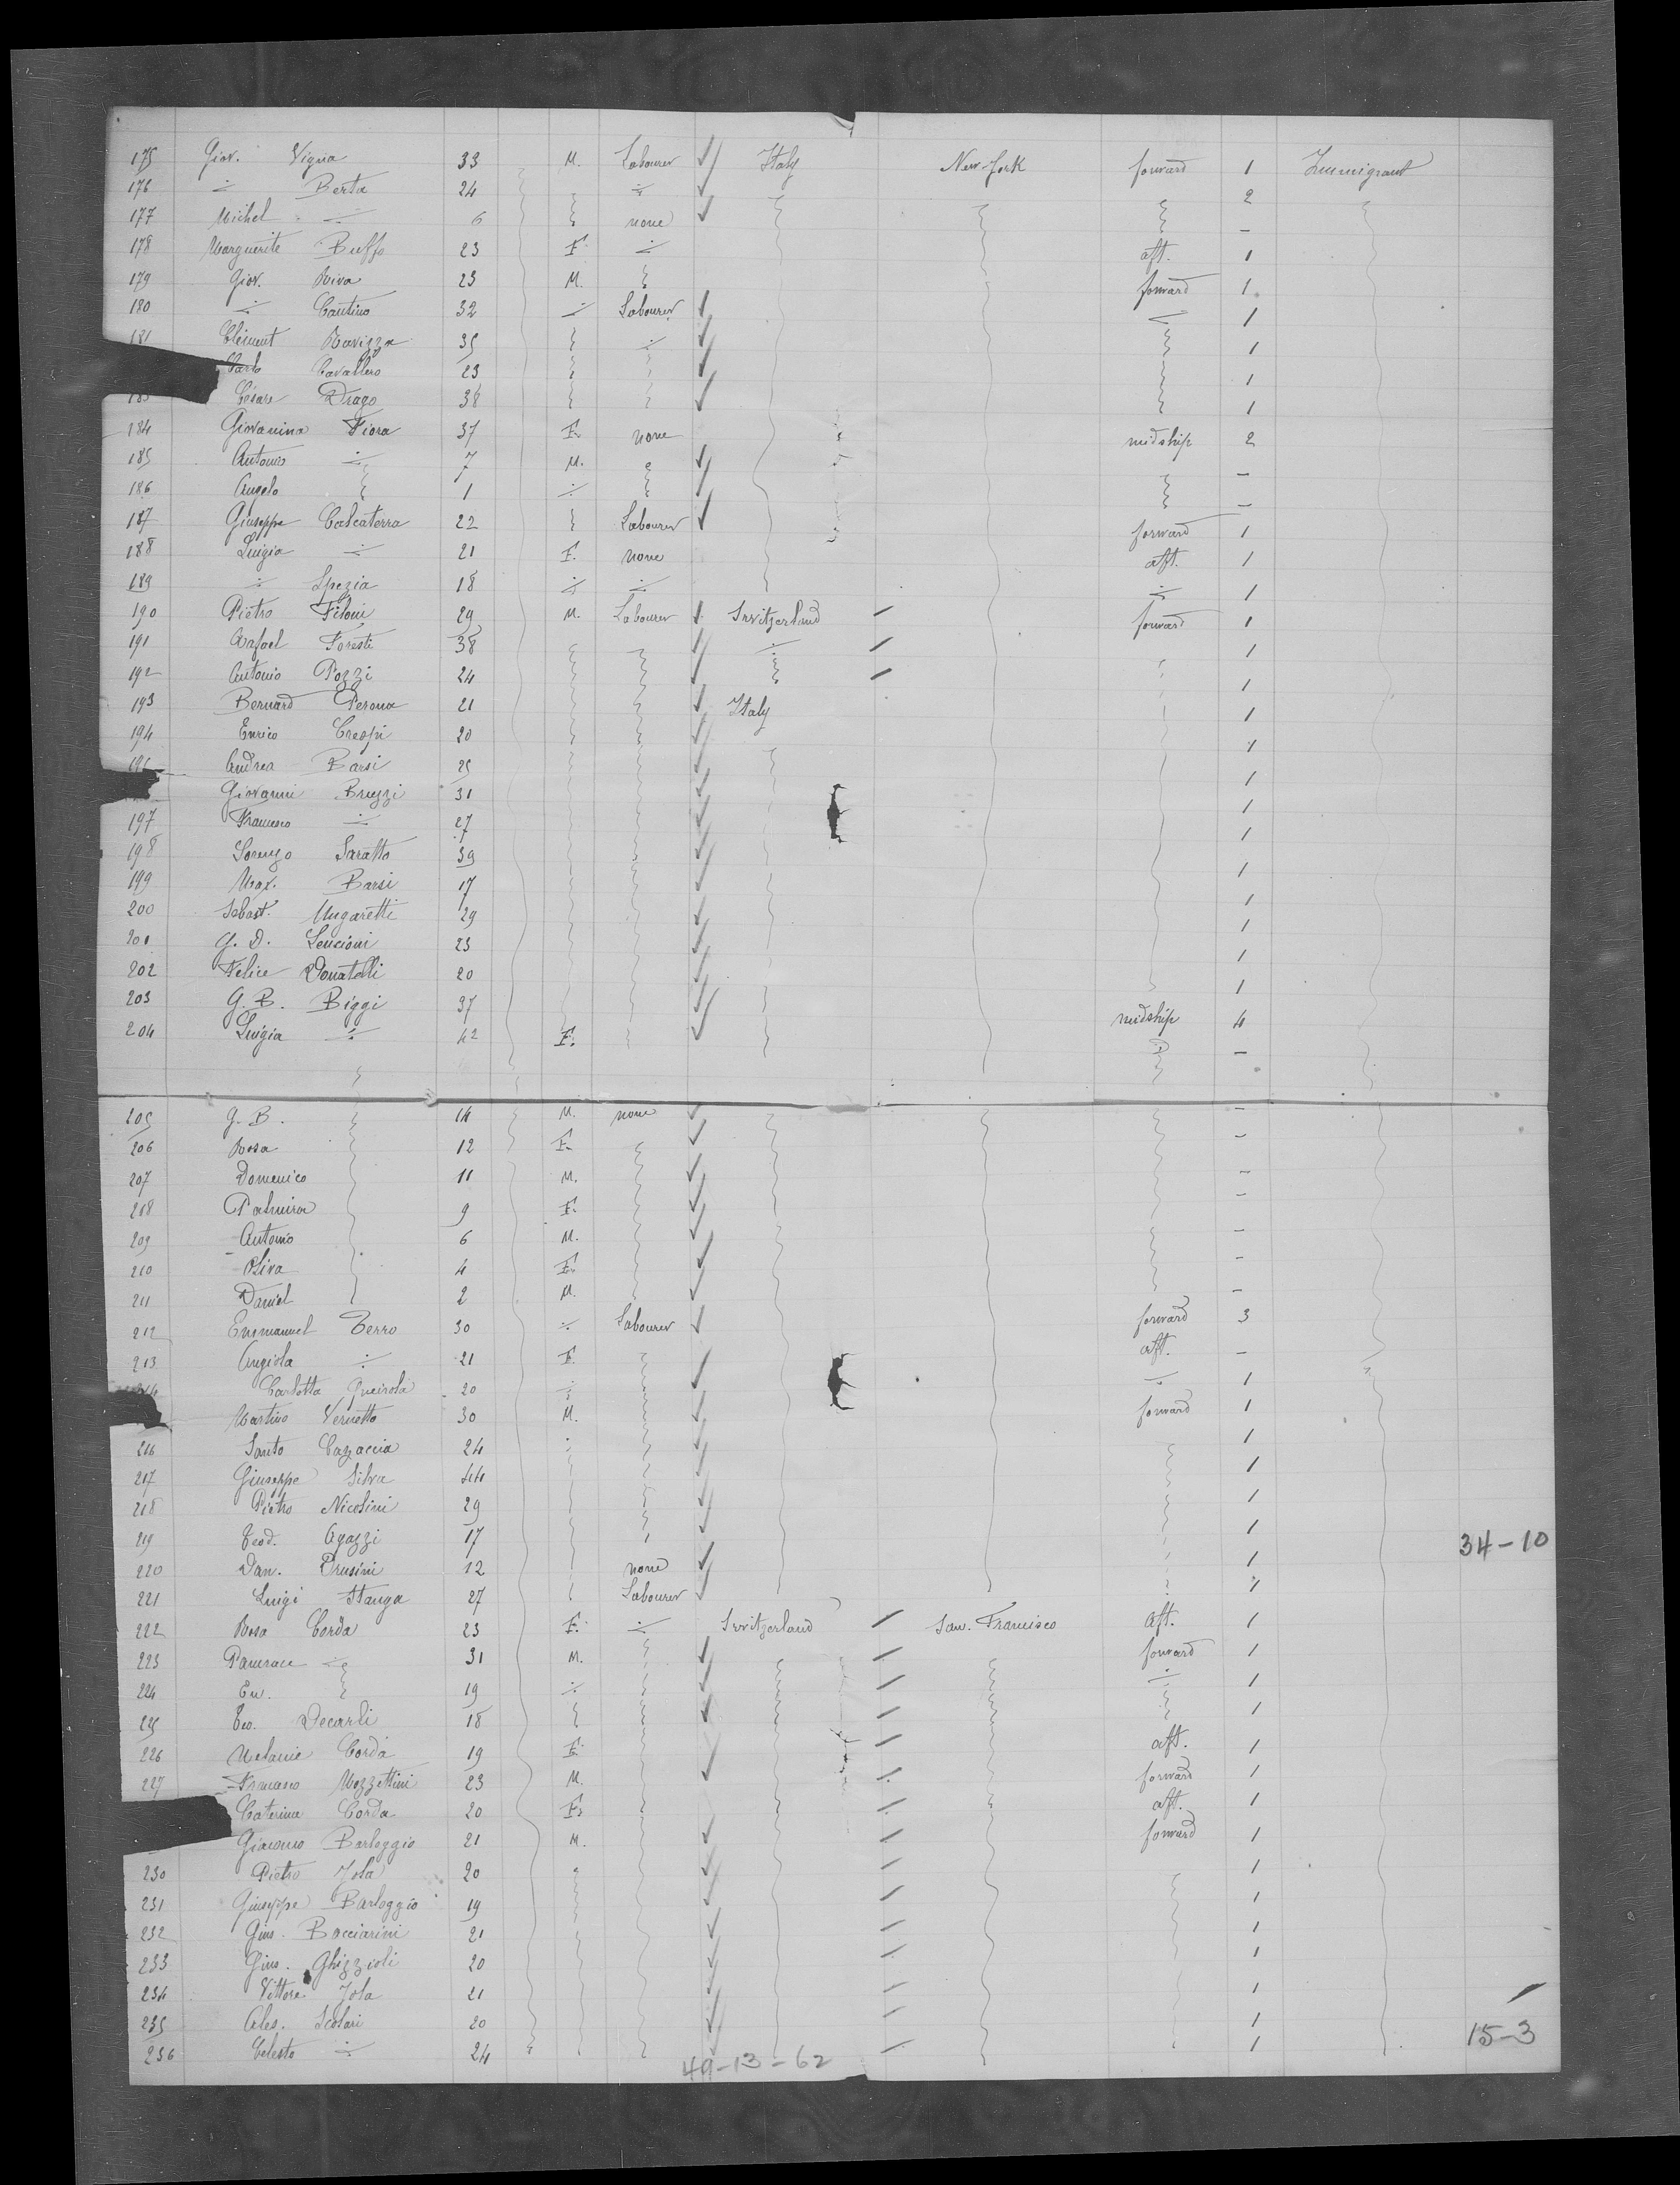 175 Giov. Vigna 33 M. Labourer Italy New-York forward 1 Immigrant
176 ÷ Berta 24 ÷ 2
177 Michel ÷ 6 none -
178 Marguerite Buffo 23 F. ÷ aft. 1
179 Giov. Riva 23 M. forward 1
180 ÷ Cantino 32 ÷ Labourer ÷ 1
181 Clément Ravizza 35 ÷ 1
Carlo Cavallero 23 1
183 César Drago 38 1
184 Giovanina Fiora 37 F. none midship 2
185 Antonio ÷ 7 M. -
186 Angelo 1 ÷ -
187 Giuseppe Calcaterra 22 Labourer forward 1
188 Luigia ÷ 21 F. none aft. 1
189 ÷ Spezia 18 ÷ ÷ ÷ 1
190 Pietro Filoni 29 M. Labourer Switzerland forward 1
191 Rafael Foresti 38 ÷ 1
192 Antonio Pozzi 24 1
193 Bernard Perona 21 Italy 1
194 Enrico Crespi 20 1
195 Andrea Barsi 25 1
Giovanni Bruzzi 31 1
197 Francesco ÷ 27 1
198 Lorenzo Saratto 39 1
199 Max. Barsi 17 1
200 Sebast. Ungaretti 29 1
201 G. D. Lencioni 23 1
202 Felice Donatelli 20 1
203 G. B. Biggi 37 midship 4
204 Luigia ÷ 42 F. -
205 G. B. 14 M. none -
206 Rosa 12 F. -
207 Domenico 11 M. -
208 Palmira 9 F. -
209 Antonio 6 M. -
210 Oliva 4 F. -
211 Daniel 2 M. -
212 Emmanuel Ferro 30 ÷ Labourer forward 3
213 Angiola ÷ 21 F. aft. -
Carlotta Queirola 20 ÷ ÷ 1
Martino Vernetto 30 M. forward 1
216 Santo Cazaccia 24 1
217 Giuseppe Silva 44 1
218 Pietro Nicolini 29 1
219 Teod. Agazzi 17 1
34-10
220 Dan. Prusini 12 none 1
221 Luigi Stanga 27 Labourer 1
222 Rosa Corda 23 F. ÷ Switzerland San. Francisco aft. 1
223 Pancrace ÷ 31 M. forward 1
224 Em. 19 ÷ ÷ 1
225 Teo. Decarli 18 1
226 Melanie Corda 19 F. aft. 1
227 Francesco Mozzettini 23 M. forward 1
Caterina Corda 20 F. aft. 1
Giacomo Barloggio 21 M. forward 1
230 Pietro Jola 20 1
231 Giuseppe Barloggio 19 1
232 Gius. Bacciarini 21 1
233 Gius. Ghizzioli 20 1
234 Vittore Jola 21 1
235 Ales. Scolari 20 1
15-3
236 Celeste ÷ 24 1
49-13-62